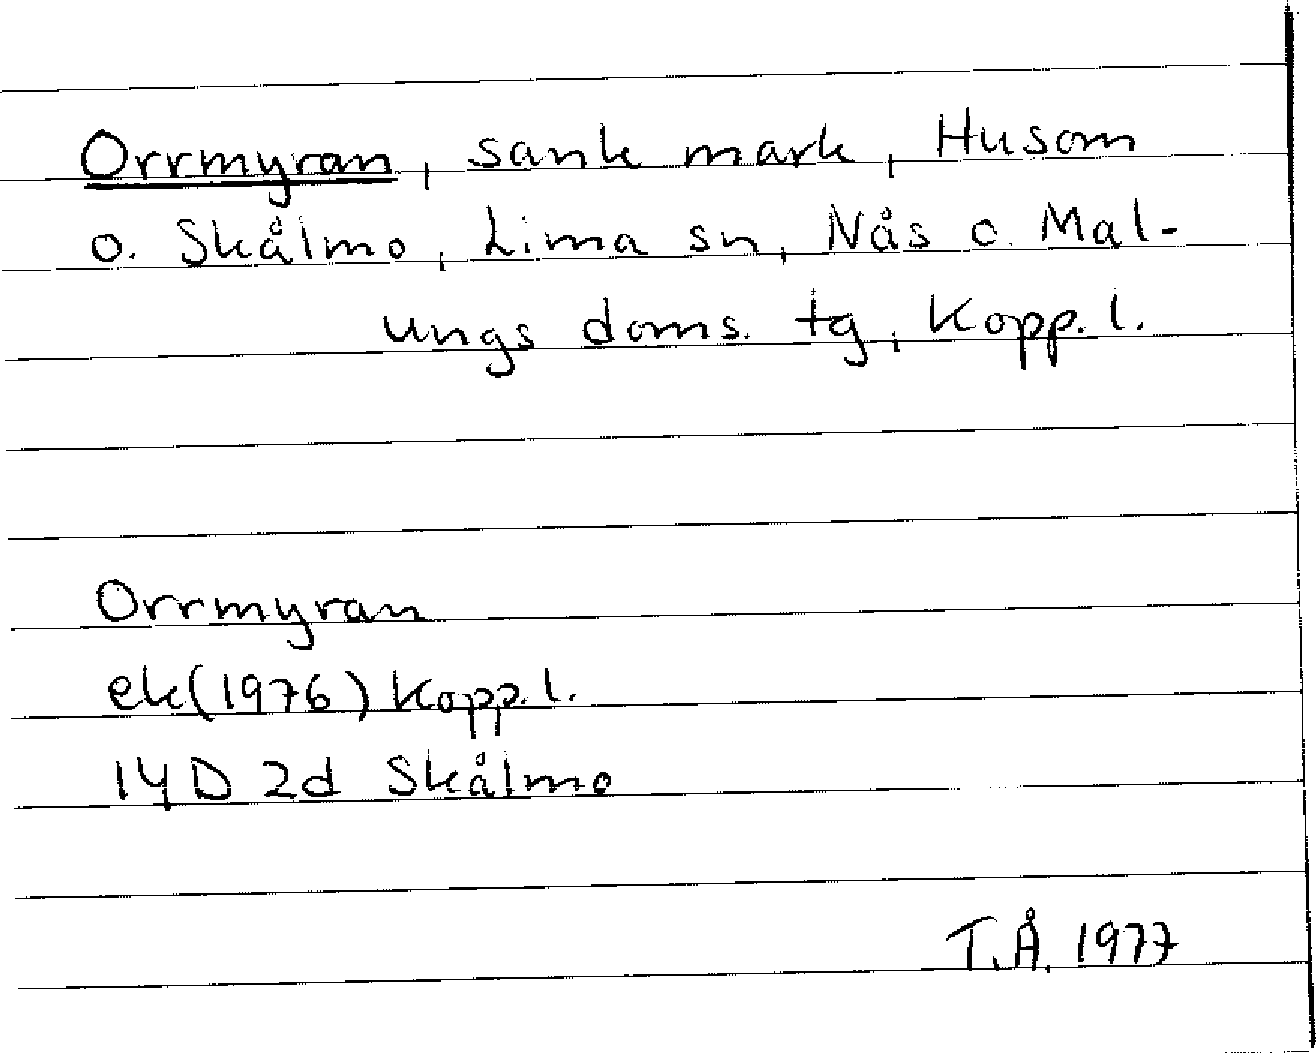 Orrmyran, sank mark, Husom
o. Skålmo, Lima sn, Nås o. Mal-
ungs doms. tg, Kopp. l.
Orrmyran
ek(1976) Kopp. l.
14D 2d Skålmo
T.Å. 1977